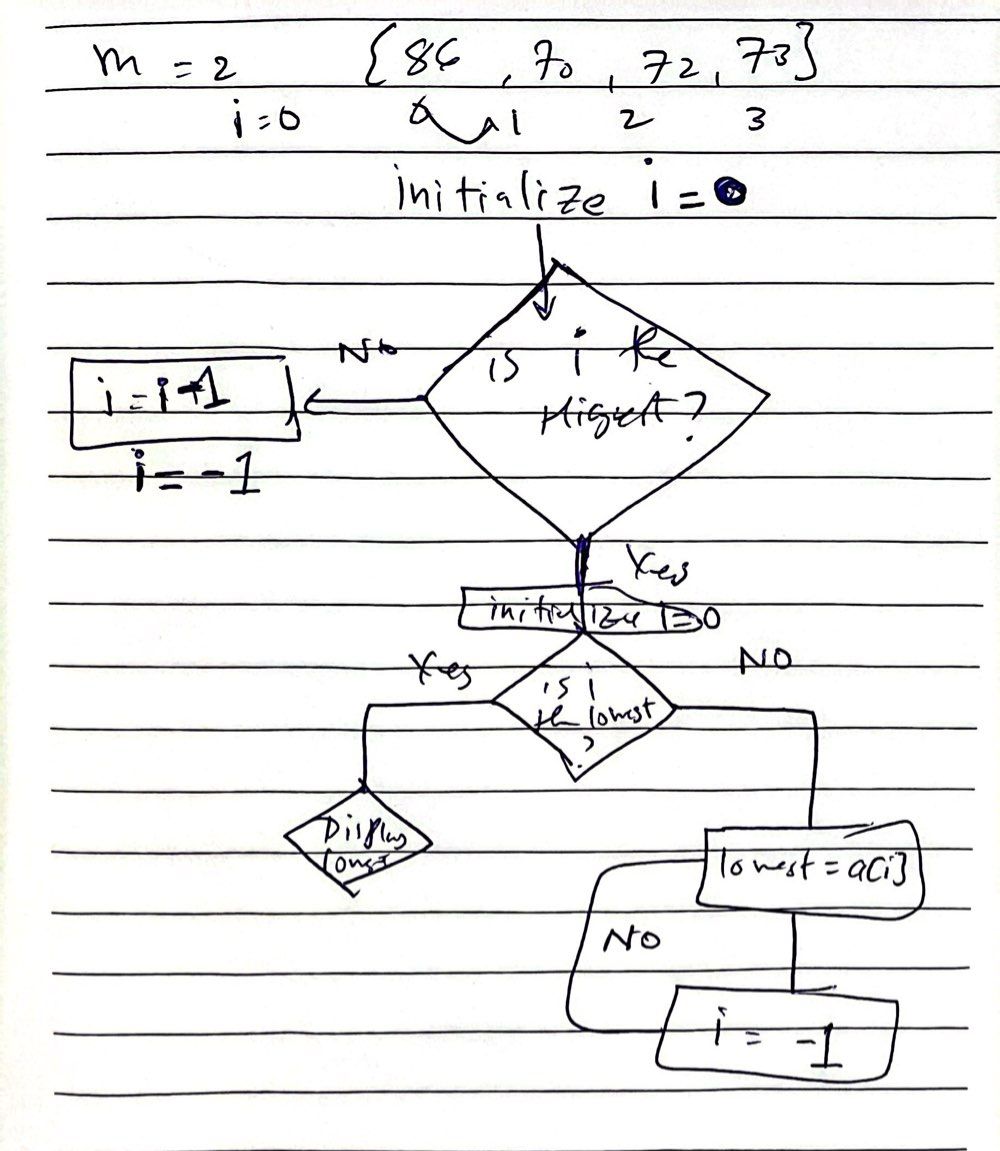 m = 2 {86, 70, 72, 73}
i=0 0 1 2 3
initialize i =
is i the
Highest?
No
i = i+1
i = -1
Yes
initialize i=0
Yes
NO
is i
the lowest
?
Display
lowest
lowest = a[i]
NO
i = -1